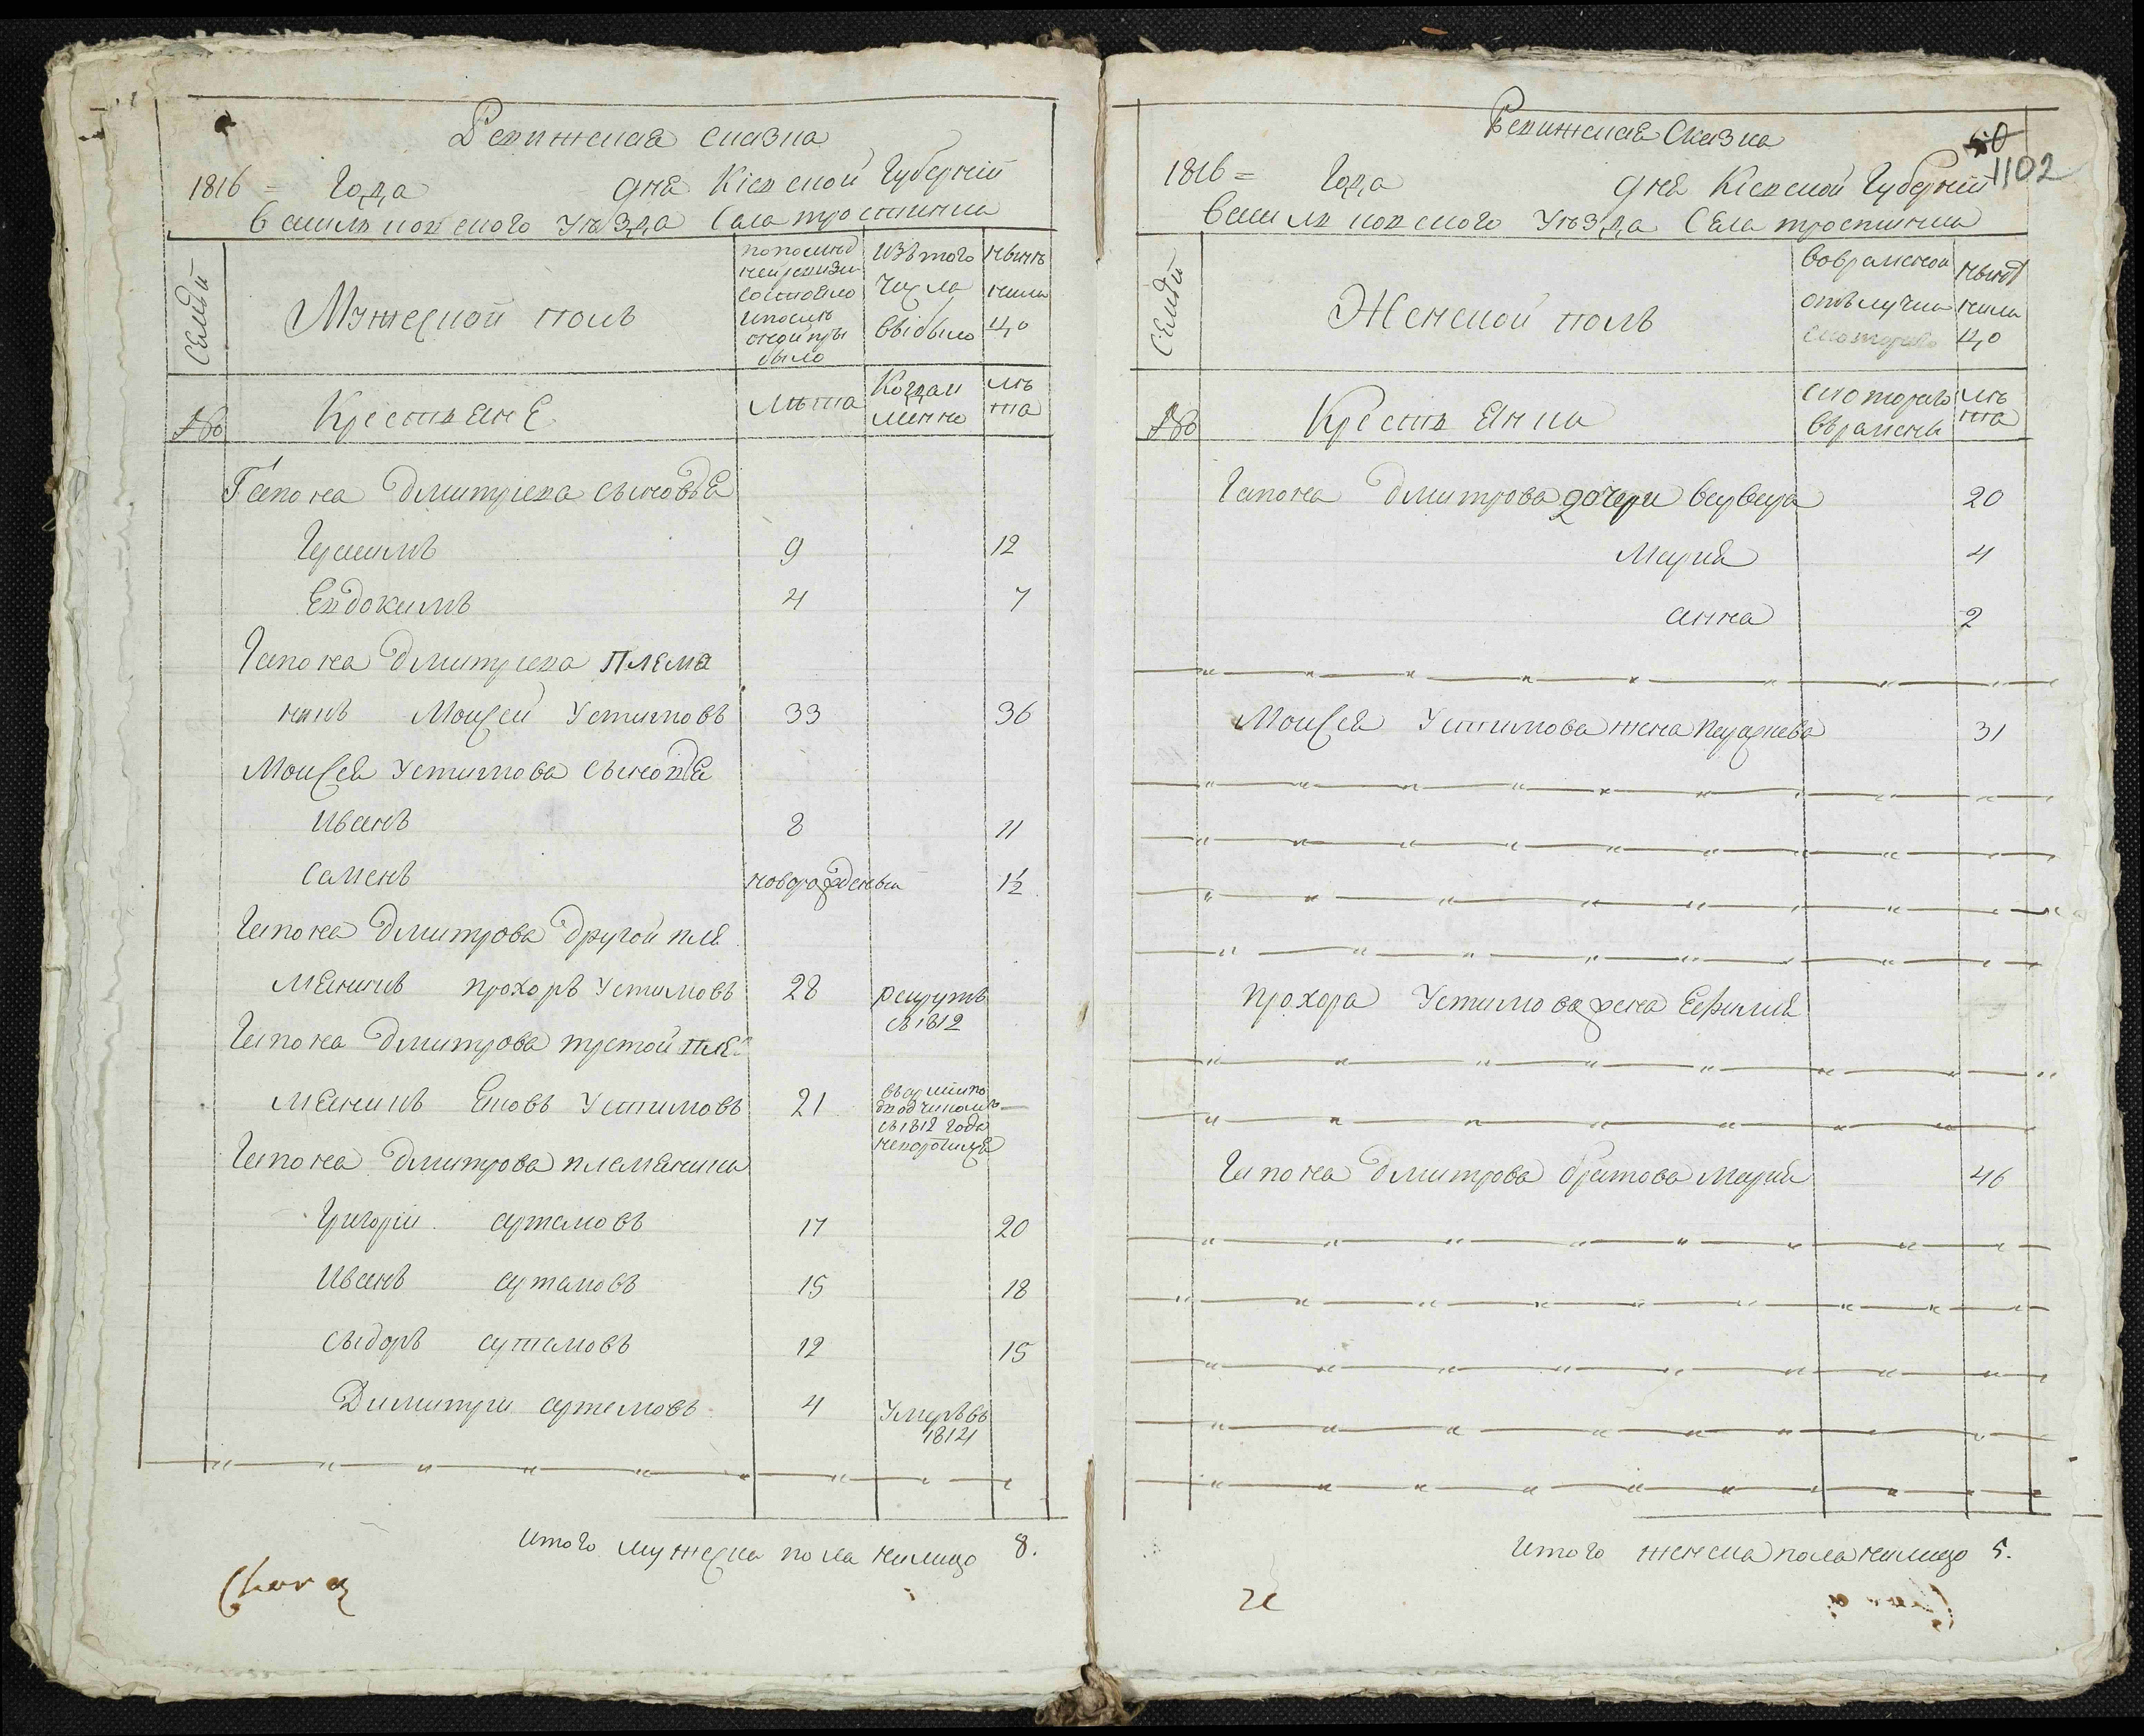 Ревижская сказка
1816 = Года дня Кіевской Губерніи
Василковского Уезда Села тростинки
Семьи
Мужеской полъ
по послед
ней ревизи
состояло
и после
оной при
было
Изъ того
числа
выбыло
ныне
нали
цо
№
Крестьяне
Лета
Когда и
менно
ле
та
Гапона Дмитриева сыновья
Герасимъ 9 12
Евдокимъ 4 7
Гапона Дмитриева племя
никъ Моисей Устимовъ 33 36
Моисея Устимова сыновья
Иванъ 8 11
Семенъ новорожденъи 1½
Гапона Дмитрова Другой пле
мяникъ прохоръ Устимовъ 28 рекрутъ
съ 1812
Гапона Дмитрова третой пле
мяникъ Яковъ Устимовъ 21
съ 1812 года
Гапона Дмитрова племяники
Григорій артемовъ 17 20
Иванъ артемовъ 15 18
Сыдоръ артемовъ 12 15
Димитри артемовъ 4 Умеръ въ
1814
Итого мужеска пола налицо 8.
Ревижская Сказка
50
1102
1816 = Года дня Кіевской Губерніи
Василковского Уезда Села тростинки
Семьи
Женской полъ
Во временой
отълучки
ныне
нали
цо
№
Крестьянки
с которого
времени
ле
та
Гапона Дмитрова дочери варвара 20
Мария 4
анна 2
Моисея Устимова жена параскева 31
прохора Устимова жена Ефимия
Гапона Дмитрова братова Мария 46
Итого женска пола налицо 5.